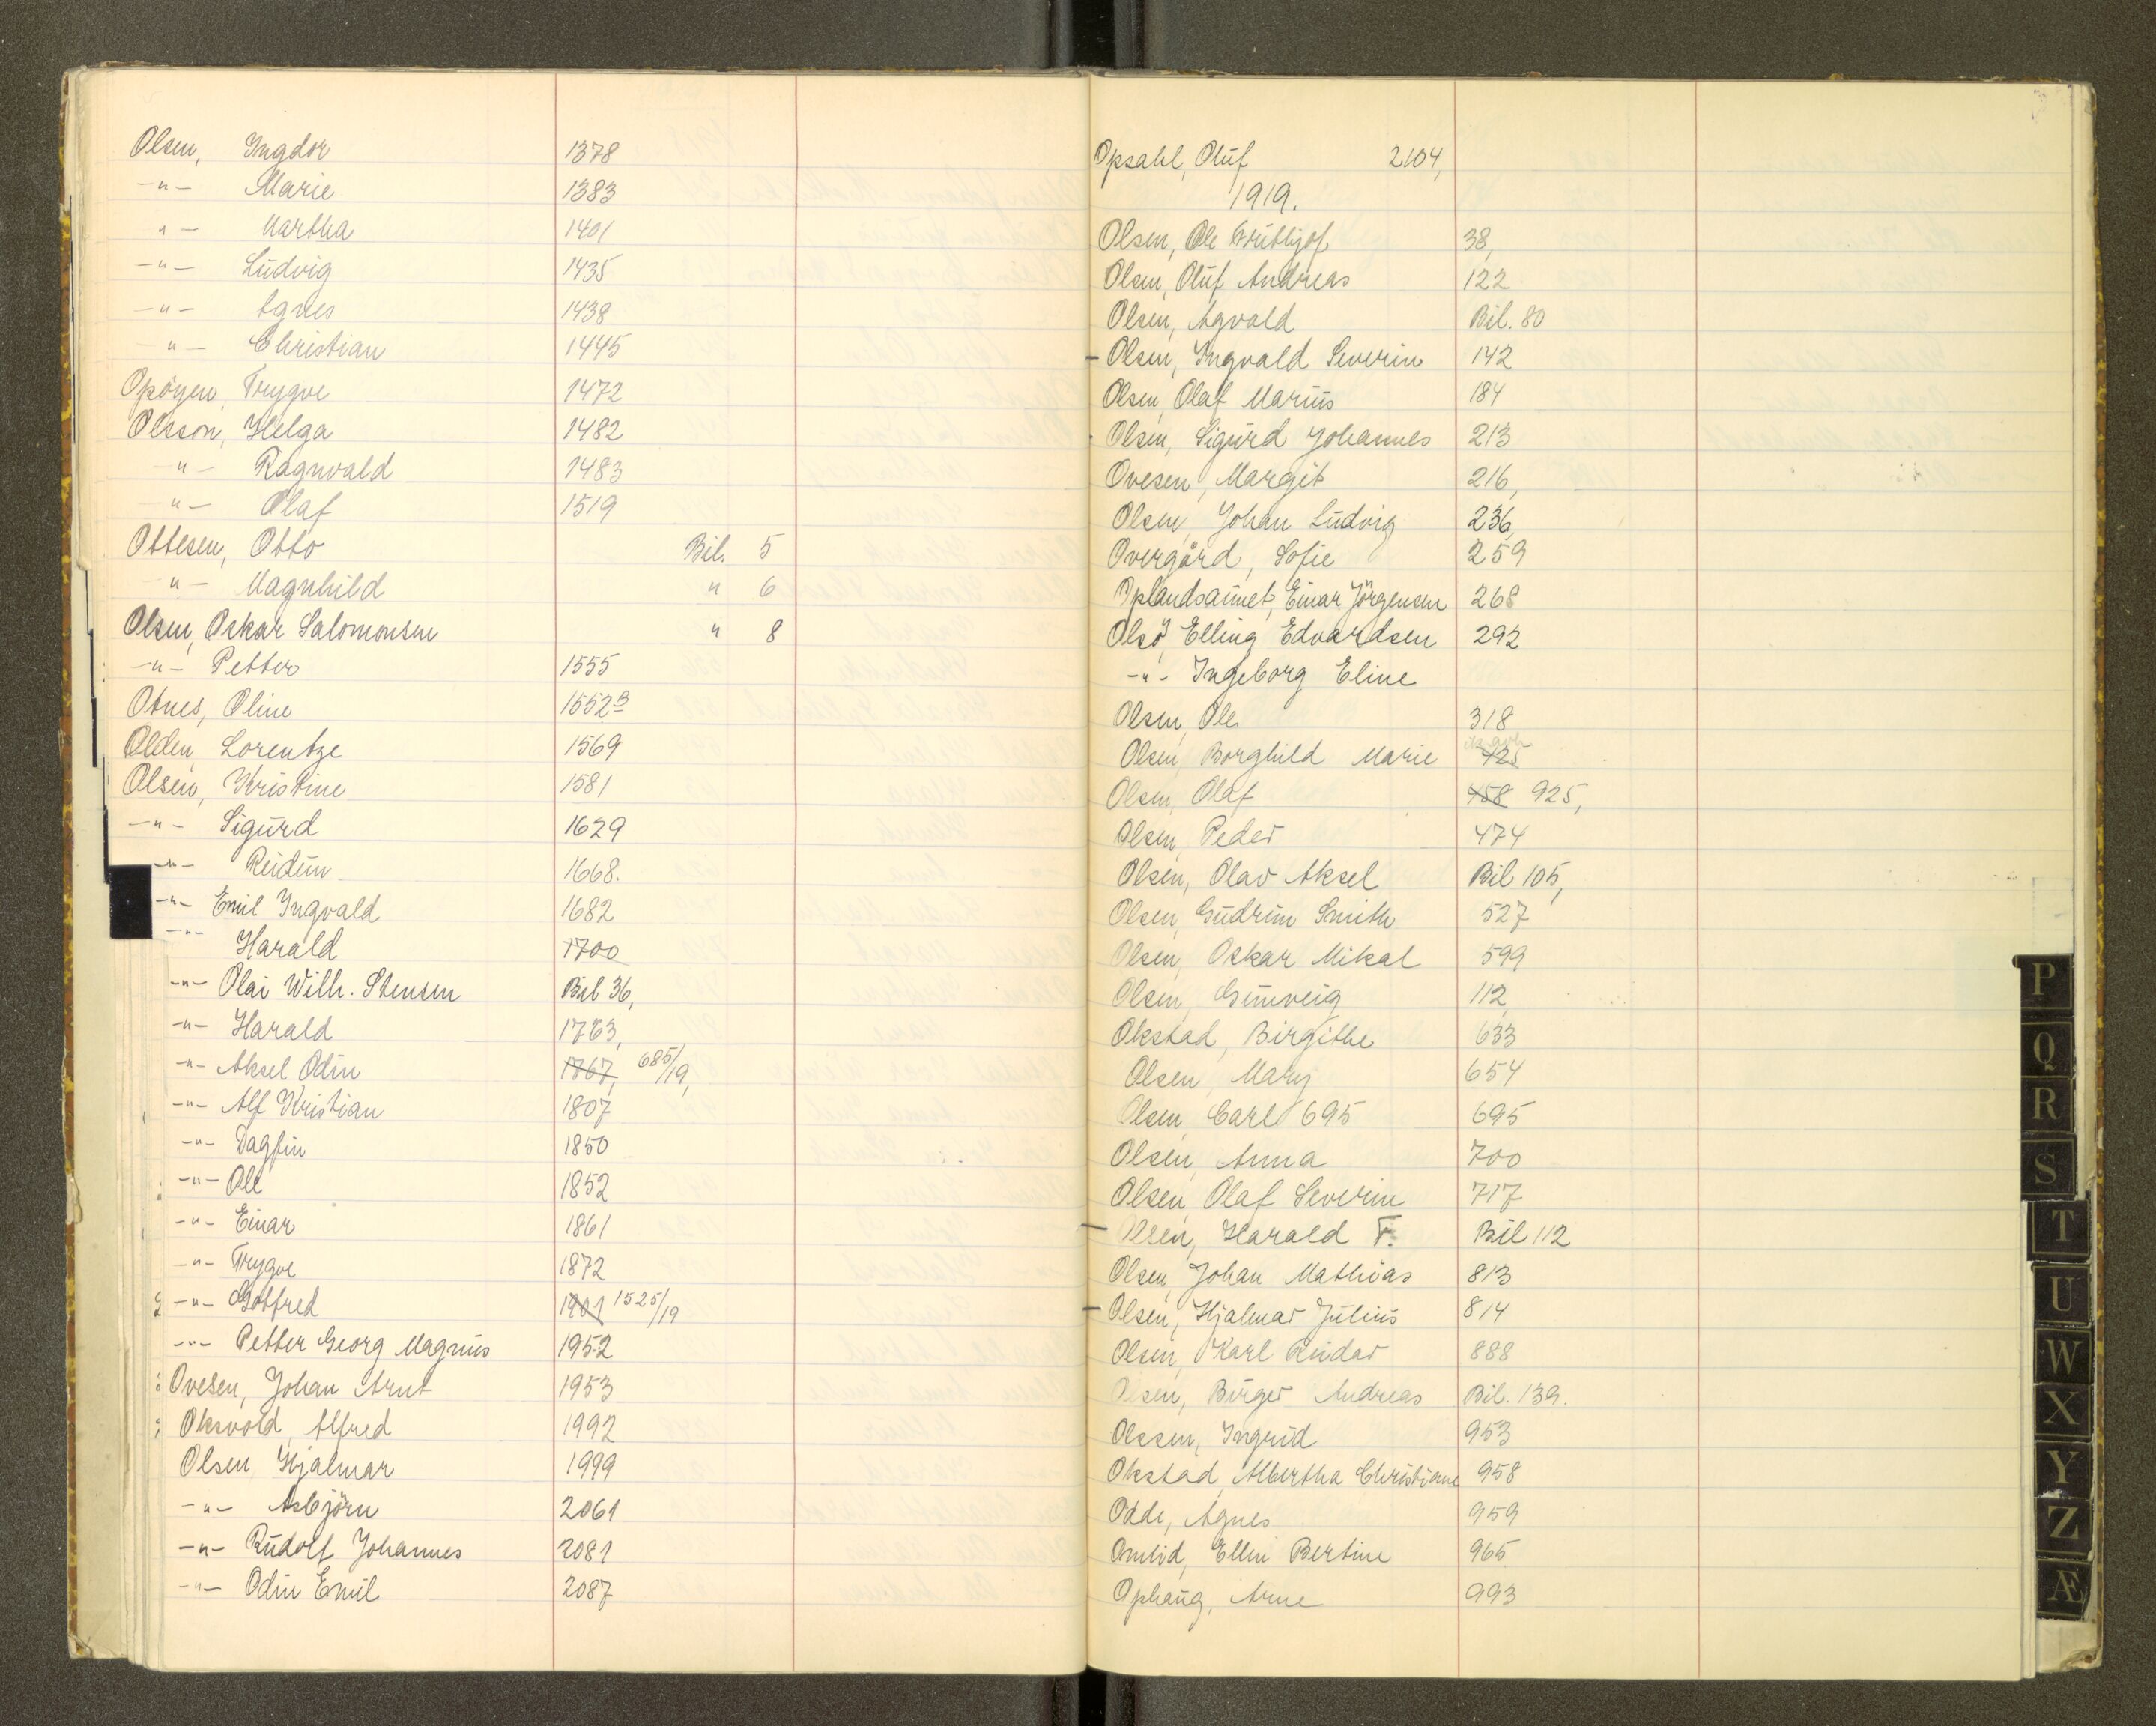 Olsen, Ingdor 1378
-"- Marie 1383
"- Martha 1401
-"- Ludvig 1435
-"- Agnes 1438
"- Christian 1445
Opöyen, Trygve 1472
Olsson, Helga 1482
"- Ragnvald 1483
"- Olaf 1519
Ottesen, Otto Bil. 5
"- Magnhild " 6
Olsen, Oskar Salomonsen " 8
-"- Petter 1555
Otnes, Oline 1552B
Olden, Lorentze 1569
Olsen, Kristine 1581
-"- Sigurd 1629
-"- Reidun 1668.
-"- Emil Ingvald 1682
-"- Harald 1700
-"- Olai Wilh. Stensen Bil 36,
-"- Harald 1763,
-"- Aksel Odin 1767, 685/19,
-"- Alf Kristian 1807
-"- Dagfin 1850
-"- Ole 1852
-"- Einar 1861
-"- Trygve 1872
-"- Gotfred 1901 1525/19
-"- Petter Georg Magnus 1952
Ovesen, Johan Arnt 1953
Oksvold, Alfred 1992
Olsen, Hjalmar 1999
-"- Asbjörn 2061
-"- Rudolf Johannes 2081
-"- Odin Emil 2087
Opsahl, Oluf 2104,
1919.
Olsen, Ole Frithjof 38,
Olsen, Oluf Andreas 122
Olsen, Agvald Bil. 80
- Olsen, Ingvald Severin 142
Olsen, Olaf Marius 184
Olsen, Sigurd Johannes 213
Ovesen, Margit 216,
Olsen, Johan Ludvig 236,
Overgård, Sofie 259
Oplandsaunet, Einar Jörgensen 268
Olsö, Elling Edvardsen 292
-"- Ingeborg Eline
Olsen, Ole 318
Olsen, Borghild Marie 425
Olsen, Olaf 458 925,
Olsen, Peder 474
Olsen, Olav Aksel Bil 105,
Olsen, Gudrun Smith 527
Olsen, Oskar Mikal 599
Olsen, Gunveig 112,
Okstad, Birgithe 633
Olsen, Mary 654
Olsen, Carl 695 695
Olsen, Anna 700
Olsen, Olaf Severin 717
- Olsen, Harald F. Bil 112
Olsen, Johan Mathias 813
- Olsen, Hjalmar Julius 814
Olsen, Karl Reidar 888
Olsen, Birger Andreas Bil. 139.
Olssen, Ingrid 953
Okstad, Albertha Christiane 958
Odde, Agnes 959
Omlid, Ellen Bertine 965
Ophaug, Arne 993
P
Q
R
S
T
U
W
X
Y
Z
Æ